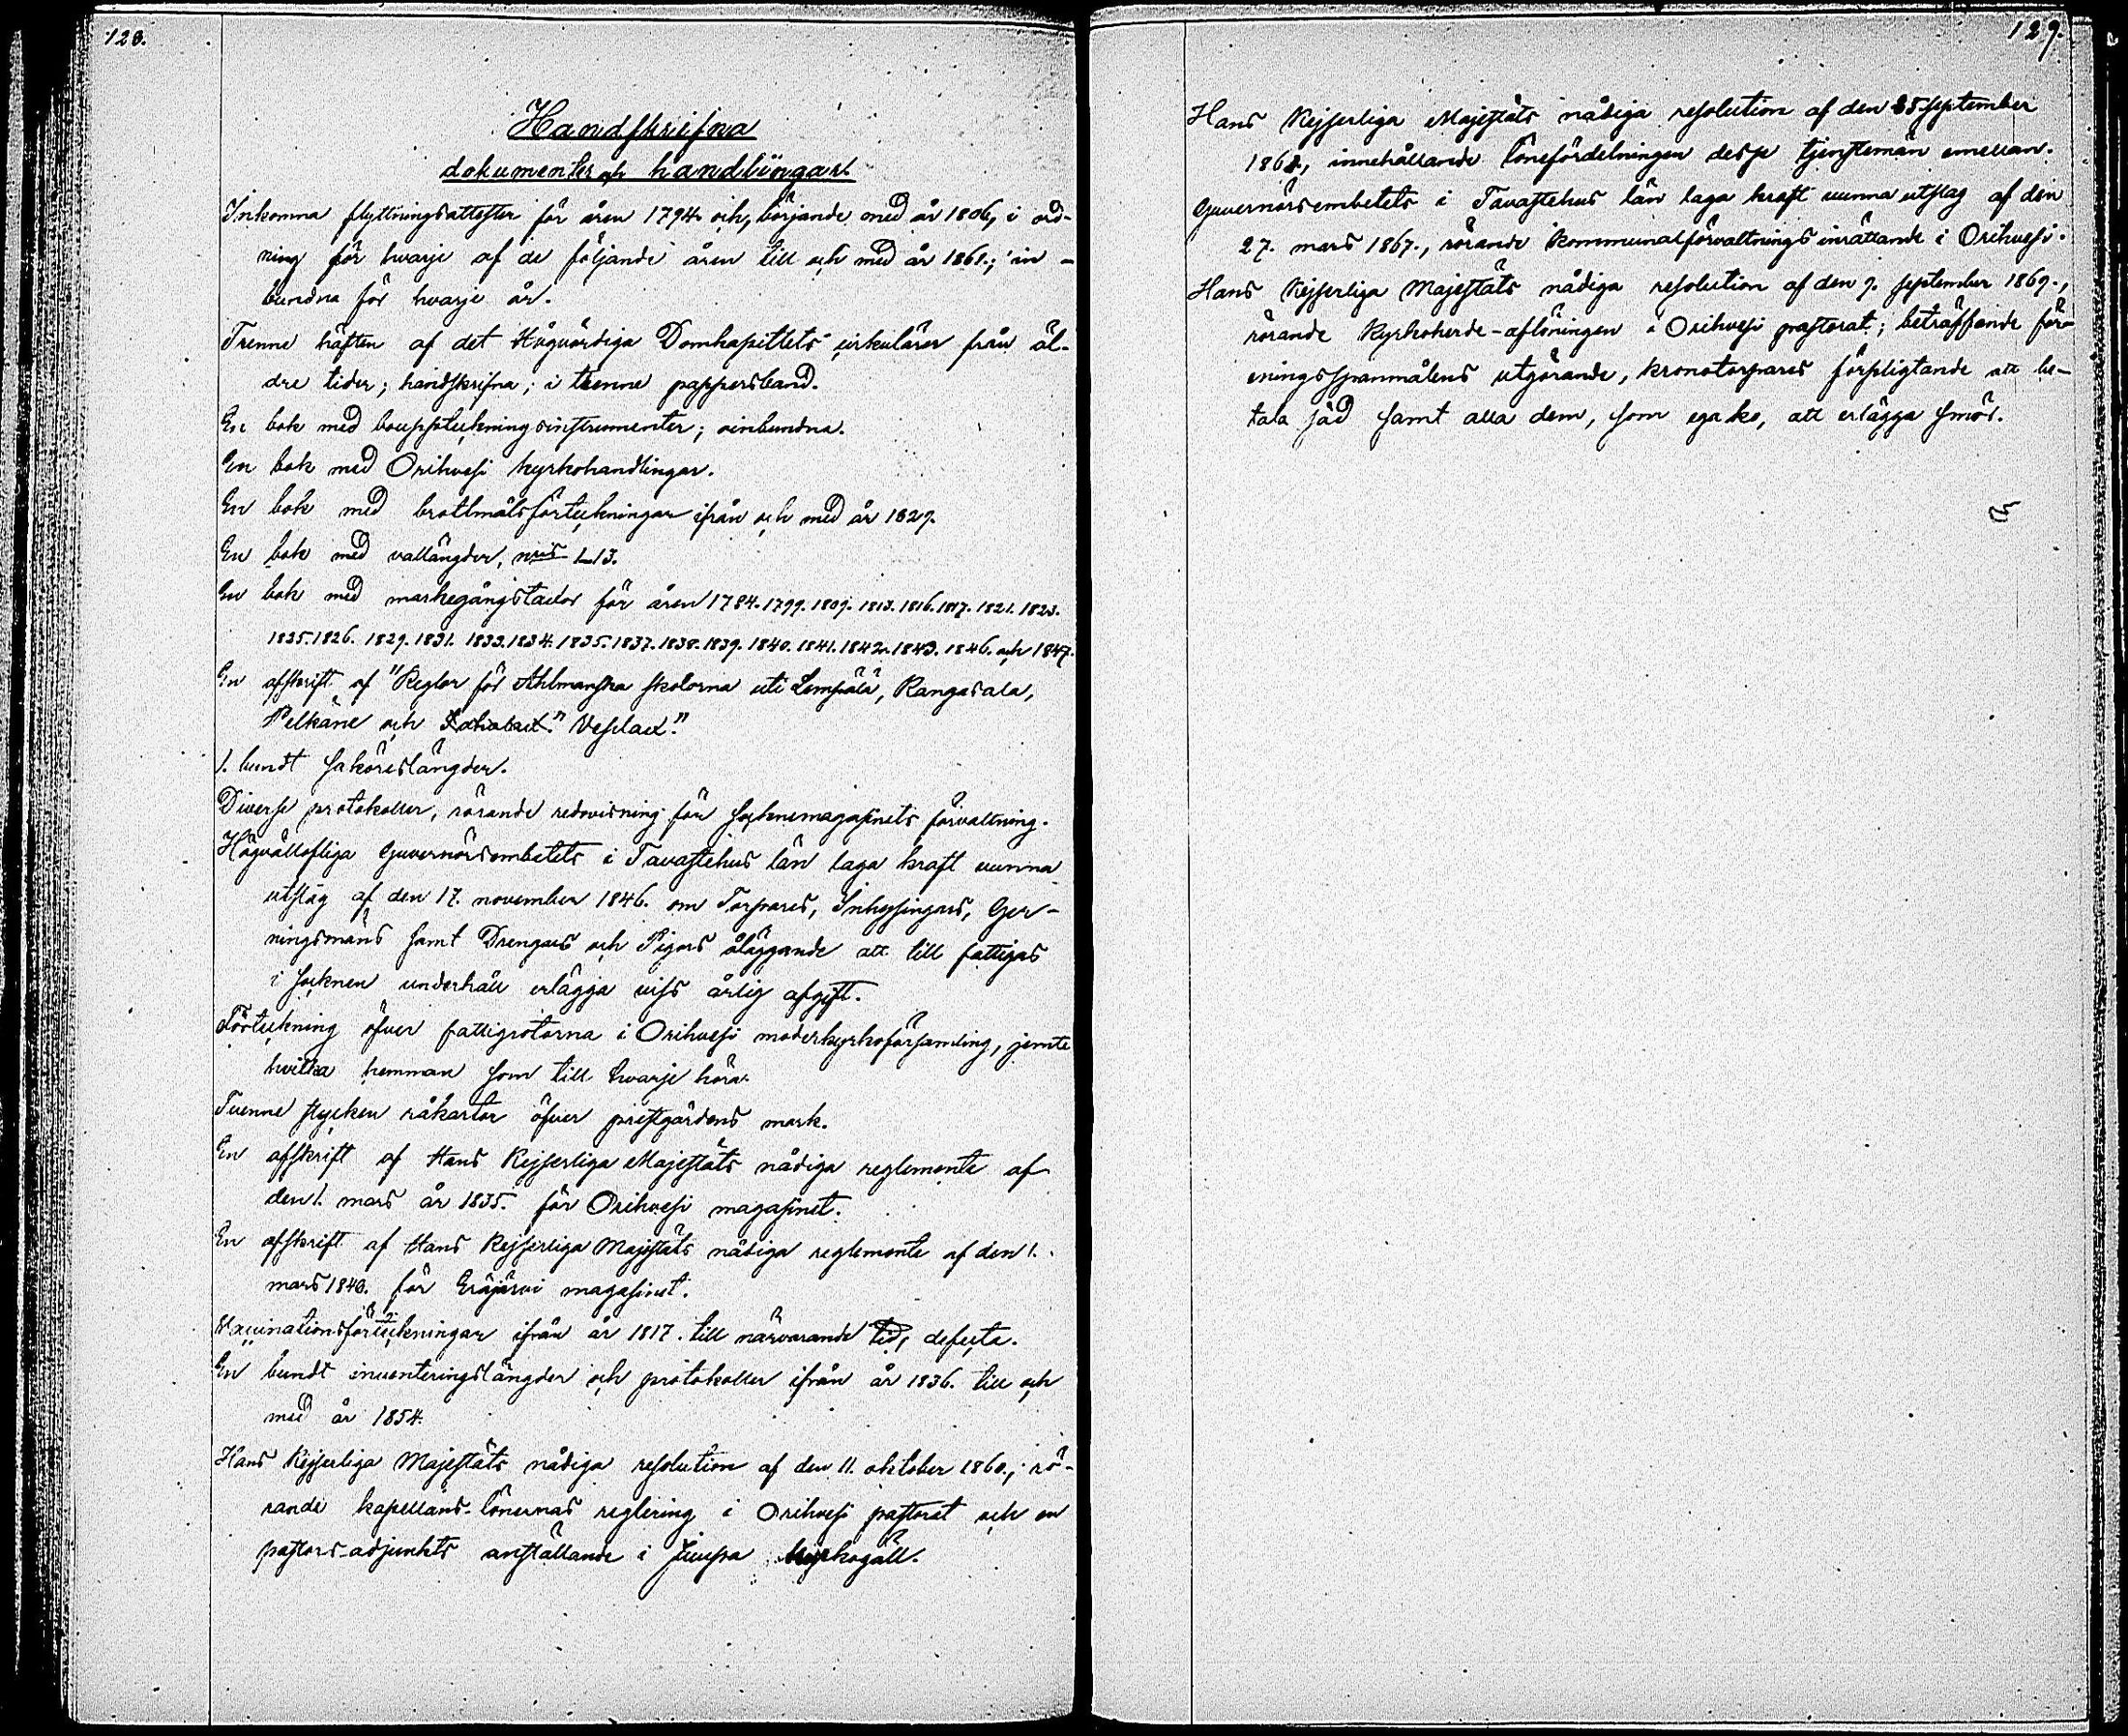 128.
Handskrifna
dokumenter och handlingar.
Inkomna flyttningsattester för åren 1794 och, börjande med år 1806, i ord-
ning för hvarje af de följande åren till och med år 1861.; in-
bundna för hvarje år.
Trenne häften af det Högvördiga Domkapitlets cirkulärer från äl-
dre tider; handskrifna; i trenne pappersband.
En bok med bouppteckningsinstrumenter; oinbundna.
En bok med Orihvesi kyrkohandlingar.
En bok med brottmålsförteckningar ifrån och med år 1829.
En bok med vallängder, nris 1-13.
En bok med markegångstaxor för åren 1784. 1799. 1809. 1813. 1816. 1817. 1821. 1823.
1825. 1826. 1829. 1831. 1833. 1834. 1835. 1837. 1838. 1839. 1840. 1841. 1842. 1843. 1846. och 1847.
En afskrift af "Regler för Ahlmanska skolorna uti Lempälä, Kangasala,
Pelkäne och Vesilax."
1. bundt saköreslängder.
Diverse protokoller, rörande redovisning för sockenemagasinets förvaltning.
Högvällofliga Guvernörsembetets i Tavastehus län laga kraft vunna
utslag af den 17. november 1846. om Torpares, Inhysingars, Ger-
ningsmäns samt Drengars och Pigors åläggande att till fattigas
i socknen underhåll erlägga viss årlig afgift.
Förteckning öfver fattigrotorna i Orihvesi moderkyrkoförsamling, jemte
hvilka hemman som till hvarje höra.
Tvenne stycken råkartor öfver prestgårdens mark.
En afskrift af Hans Kejserliga Majestäts nådiga reglemente af
den 1. mars år 1835. för Orihvesi magasinet.
En afskrift af Hans Kejserliga Majestäts nådiga reglemente af den 1.
mars 1840. för Eräjärvi magasinet.
Vaccinationsförteckningar ifrån år 1817. till närvarande tid, defecta.
En bundt inventeringslängder och protokoller ifrån år 1836. till och
med år 1854.
Hans Kejserliga Majestäts nådiga resolution af den 11. oktober 1860., rö-
rande kapellans-lönernas reglering i Orihvesi pastorat och en
pastors-adjunkts anställande i Juupa kyrkogäll.
129.
Hans Kejserliga Majestäts nådiga resolution af den 25 september
1862, innehållande lönefördelningen desse tjenstemän emellan.
Guvernörsembetets i Tavastehus län laga kraft vunna utslag af den
27. mars 1867., rörande kommunalförvaltnings inrättande i Orihvesi.
Hans Kejserliga Majestäts nådiga resolution af den 9. september 1869.,
rörande Kyrkoherde-aflöningen i Orihvesi pastorat; beträffande för-
eningsspanmålens utgörande, kronotorpares förpligtande att be-
tala säd samt alla dem, som ega ko, att erlägga smör.